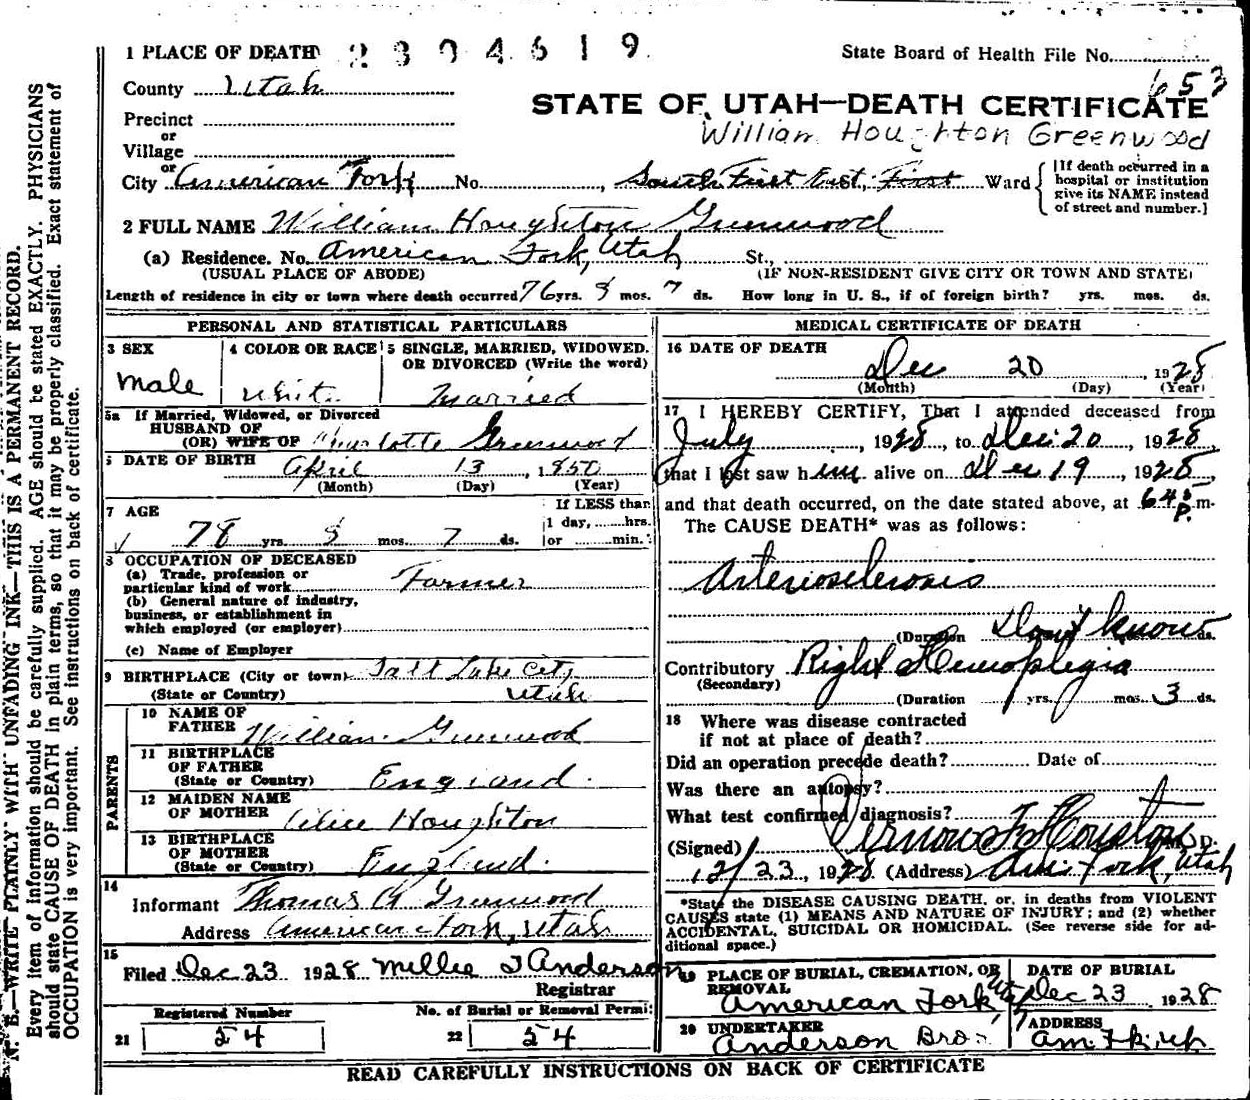 1 PLACE OF DEATH 2304619 State Board of Health File No.
653
County Utah
STATE OF UTAH—DEATH CERTIFICATE
Precinct
William Houghton Greenwood
or
Village
or
City American Fork No. , South First East, First Ward
[If death occurred in a hospital or institution give its NAME instead of street and number.]
2 FULL NAME William Houghton Greenwood
(a) Residence. No. American Fork, Utah St.,
(USUAL PLACE OF ABODE) (IF NON-RESIDENT GIVE CITY OR TOWN AND STATE)
Length of residence in city or town where death occurred 76 yrs. 8 mos. 7 ds. How long in U. S., if of foreign birth? yrs. mos. ds.
PERSONAL AND STATISTICAL PARTICULARS
3 SEX
male
4 COLOR OR RACE
white
5 SINGLE, MARRIED, WIDOWED, OR DIVORCED (Write the word)
married
5a If Married, Widowed, or Divorced
HUSBAND OF
(OR) WIFE OF Charlotte Greenwood
6 DATE OF BIRTH April 13, 1850
(Month) (Day) (Year)
7 AGE
78 yrs. 8 mos. 7 ds.
If LESS than
1 day, hrs.
or min.
8 OCCUPATION OF DECEASED
(a) Trade, profession or
particular kind of work Farmer
(b) General nature of industry,
business, or establishment in
which employed (or employer)
(c) Name of Employer
9 BIRTHPLACE (City or town) Salt Lake City
(State or Country) Utah
PARENTS
10 NAME OF
FATHER William Greenwood
11 BIRTHPLACE
OF FATHER
(State or Country) England
12 MAIDEN NAME
OF MOTHER Alice Houghton
13 BIRTHPLACE
OF MOTHER
(State or Country) England.
14
Informant Thomas A Greenwood
Address American Fork, Utah
15
Filed Dec 23 1928 Millie T Anderson
Registrar
Registered Number
21 54
No. of Burial or Removal Permit
22 54
MEDICAL CERTIFICATE OF DEATH
16 DATE OF DEATH
Dec 20 1928
(Month) (Day) (Year)
17 I HEREBY CERTIFY, That I attended deceased from
July, 1928, to Dec. 20, 1928,
that I last saw him alive on Dec 19, 1928
and that death occurred, on the date stated above, at 645 P. m.
The CAUSE DEATH* was as follows:
Arteriosclerosis
(Duration Don't know ds.
Contributory Right Hemoplegia
(Secondary)
(Duration yrs. mos. 3 ds.
18 Where was disease contracted
if not at place of death?
Did an operation precede death? Date of
Was there an autopsy?
What test confirmed diagnosis?
(Signed) Vernon F Houston M. D.
12/23, 1928. (Address) Am. Fork, Utah
*State the DISEASE CAUSING DEATH, or, in deaths from VIOLENT
CAUSES state (1) MEANS AND NATURE OF INJURY; and (2) whether
ACCIDENTAL, SUICIDAL OR HOMICIDAL. (See reverse side for ad-
ditional space.)
19 PLACE OF BURIAL, CREMATION, OR
REMOVAL
American Fork Utah
DATE OF BURIAL
Dec 23 1928
20 UNDERTAKER
Anderson Bro.
ADDRESS
READ CAREFULLY INSTRUCTIONS ON BACK OF CERTIFICATE
N. B.—WRITE PLAINLY WITH UNFADING INK—THIS IS A PERMANENT RECORD.
Every item of information should be carefully supplied. AGE should be stated EXACTLY. PHYSICIANS
should state CAUSE OF DEATH in plain terms, so that it may be properly classified. Exact statement of
OCCUPATION is very important. See instructions on back of certificate.